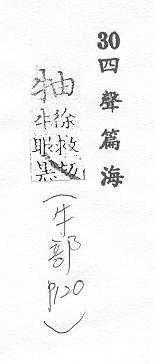 30四聲篇海
牰
徐救切
牛眼黑
(牛部 P120)